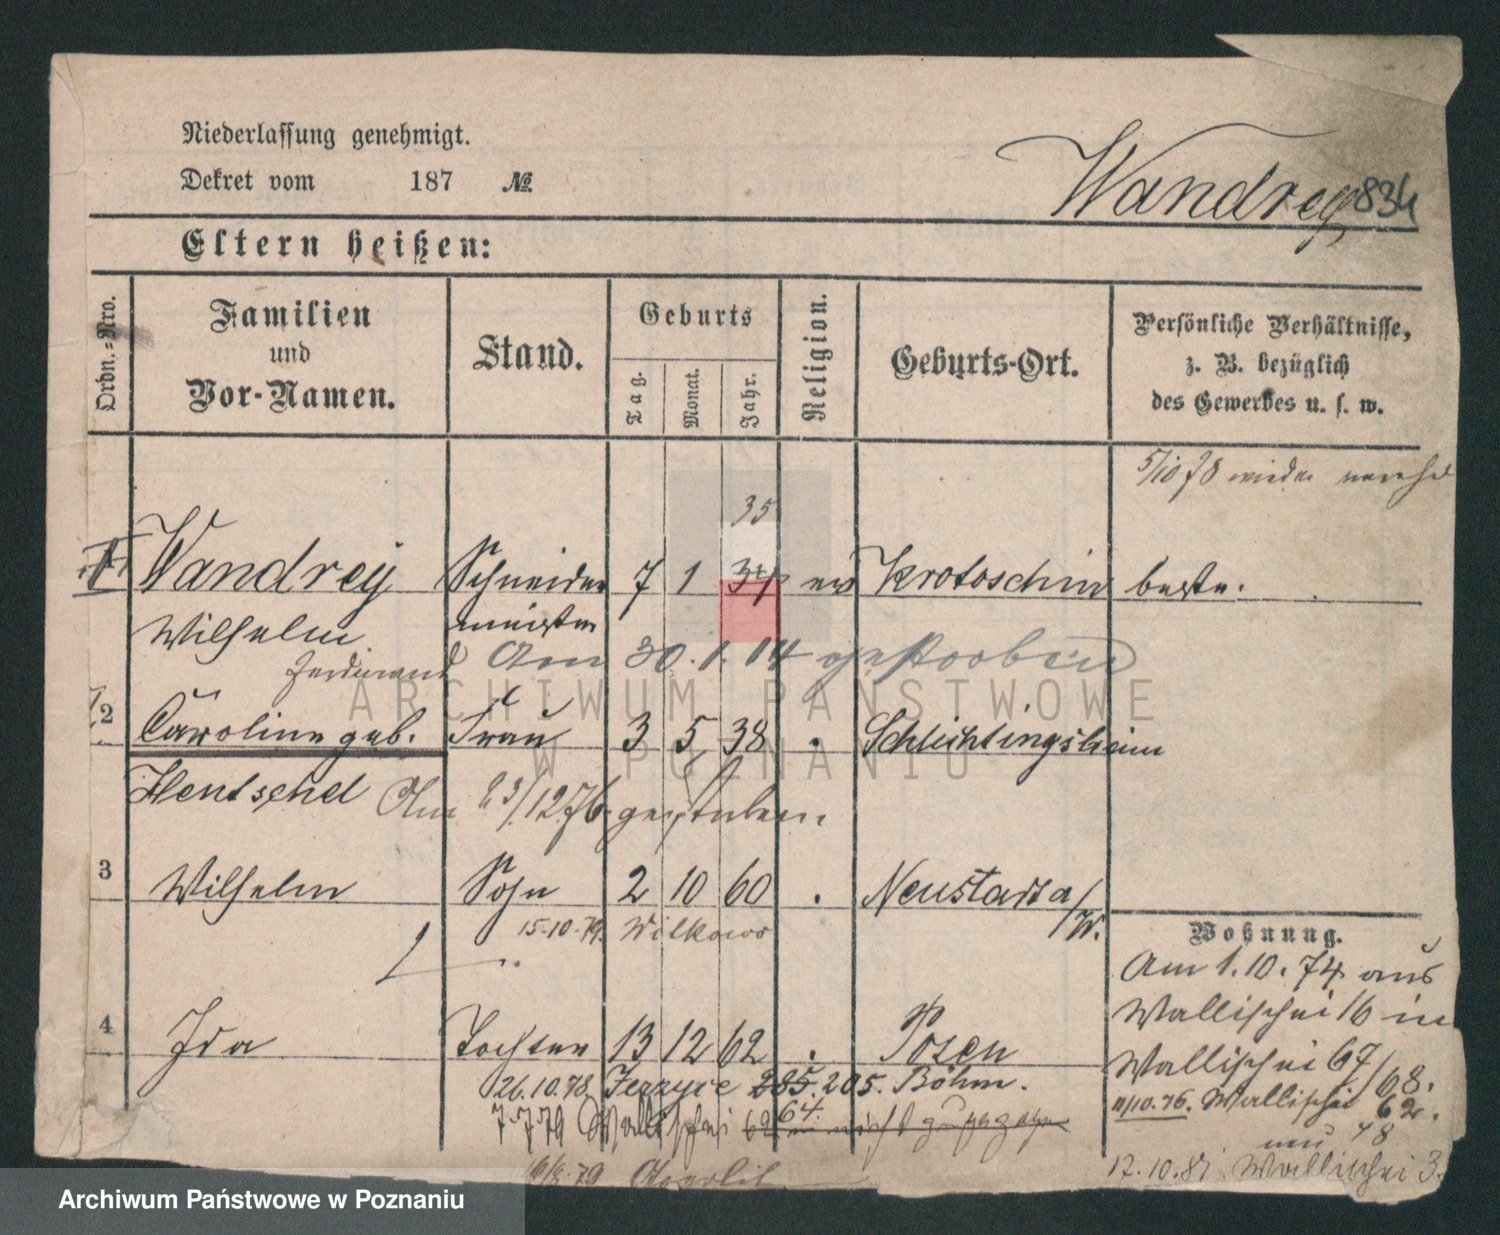 Niederlassung genehmigt.
Dekret vom 187 №
Wandrey 834
Eltern heißen:
Ordn.-Nro.
Familien
und
Vor-Namen.
Stand.
Geburts
Tag.
Monat.
Jahr.
Religion.
Geburts-Ort.
Persönliche Verhältnisse,
z. B. bezüglich
des Gewerbes u. s. w.
5/10 78 wieder
35
1 Wandrey Schneider 7 1 34 ev Krotoschin
Wilhelm meister
Ferdinand Am 30.1.14 gestorben
ARCHIWUM PAŃSTWOWE
W POZNANIU
2 Caroline geb. Frau 3 5 38 Schlichtingsheim
Hentschel Am 23/12.76 gestorben.
3 Wilhelm Sohn 2 10 60 Neustadt a/W.
15.10.79. Wilkowo
4 Ida Tochter 13 12 62 Posen
26.10.78. Jerzyce 285. 205. Böhm.
7.7.79 Wallischei 62 64. nicht zugezogen
Wohnung.
Am 1.10.74 aus
Wallischei 16 in
Wallischei 67/68.
11/10.76. Wallischei 62.
neu 48
17.10.81. Wallischei 3
Archiwum Państwowe w Poznaniu